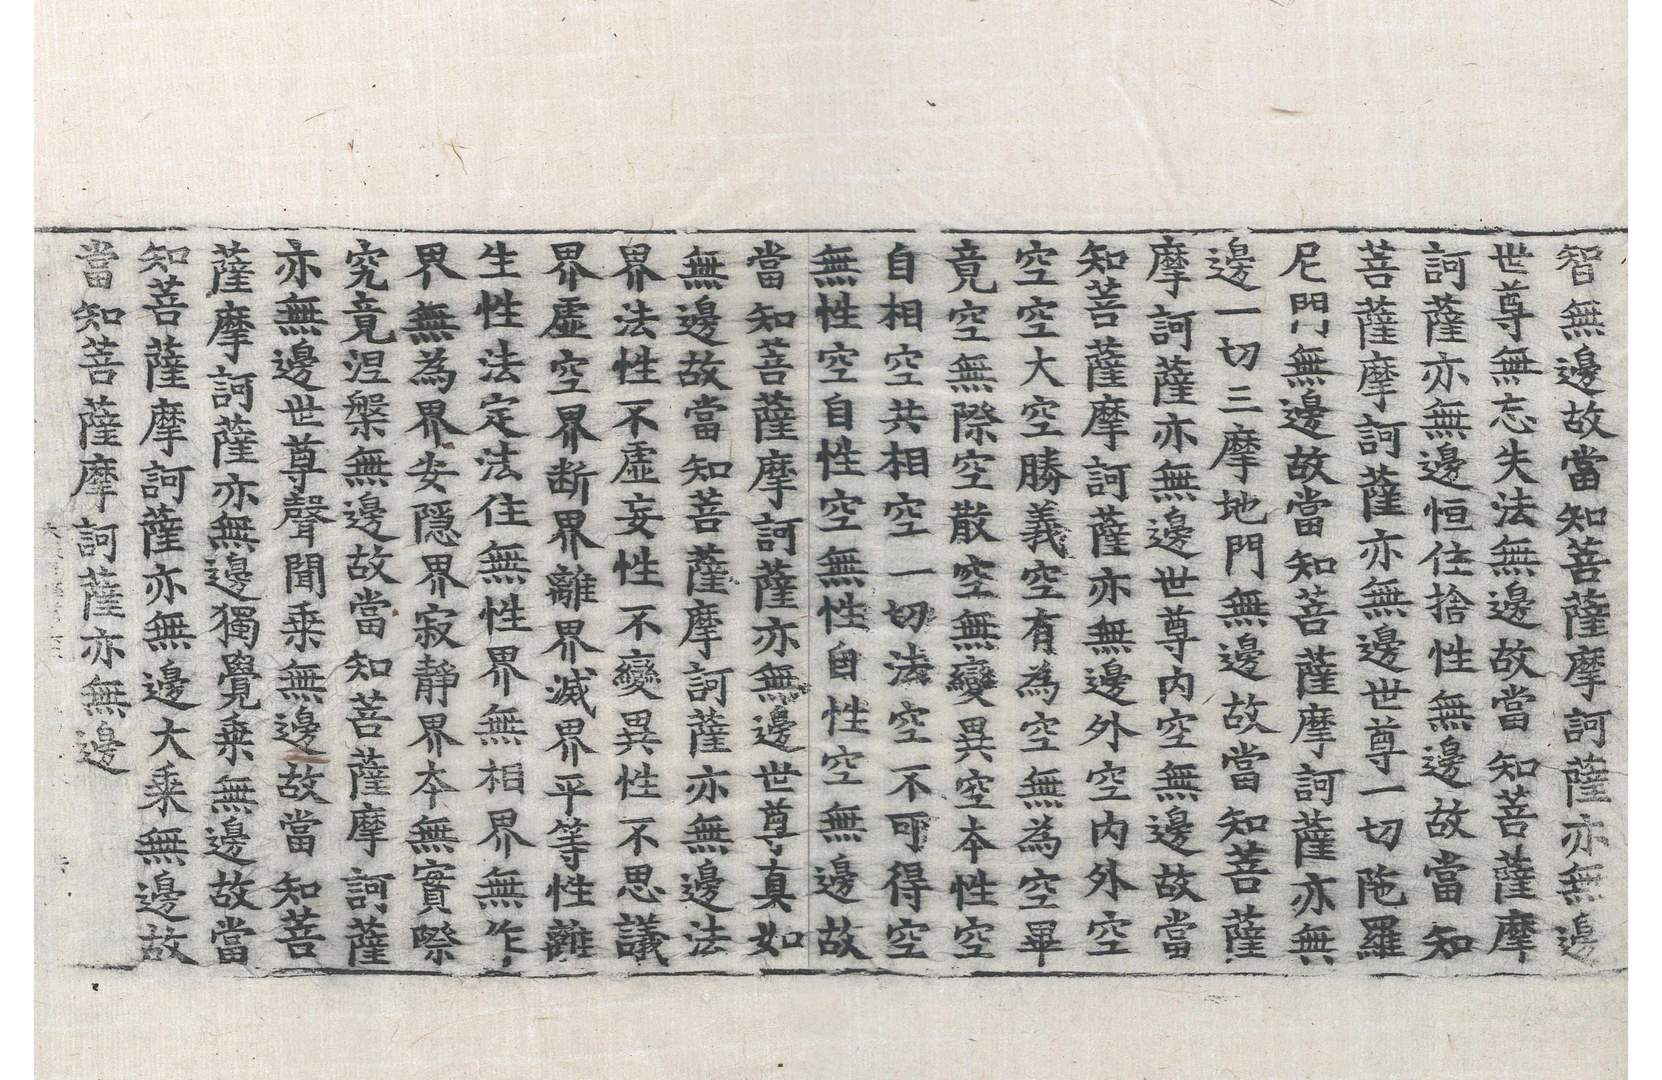 智無邊故當知菩薩摩訶薩亦無邊
世尊無忘失法無邊故當知菩薩摩
訶薩亦無邊恒住捨性無邊故當知
菩薩摩訶薩亦無邊世尊一切陁羅
尼門無邊故當知菩薩摩訶薩亦無
邊一切三摩地門無邊故當知菩薩
摩訶薩亦無邊世尊內空無邊故當
知菩薩摩訶薩亦無邊外空內外空
空空大空勝義空有為空無為空畢
竟空無際空散空無變異空本性空
自相空共相空一切法空不可得空
無性空自性空無性自性空無邊故
當知菩薩摩訶薩亦無邊世尊真如
無邊故當知菩薩摩訶薩亦無邊法
界法性不虛妄性不變異性不思議
界虛空界断界離界滅界平等性離
生性法定法住無性界無相界無作
界無為界安隱界寂靜界本無實際
究竟涅槃無邊故當知菩薩摩訶薩
亦無邊世尊聲聞乘無邊故當知菩
薩摩訶薩亦無邊獨覺乘無邊故當
知菩薩摩訶薩亦無邊大乘無邊故
當知菩薩摩訶薩亦無邊